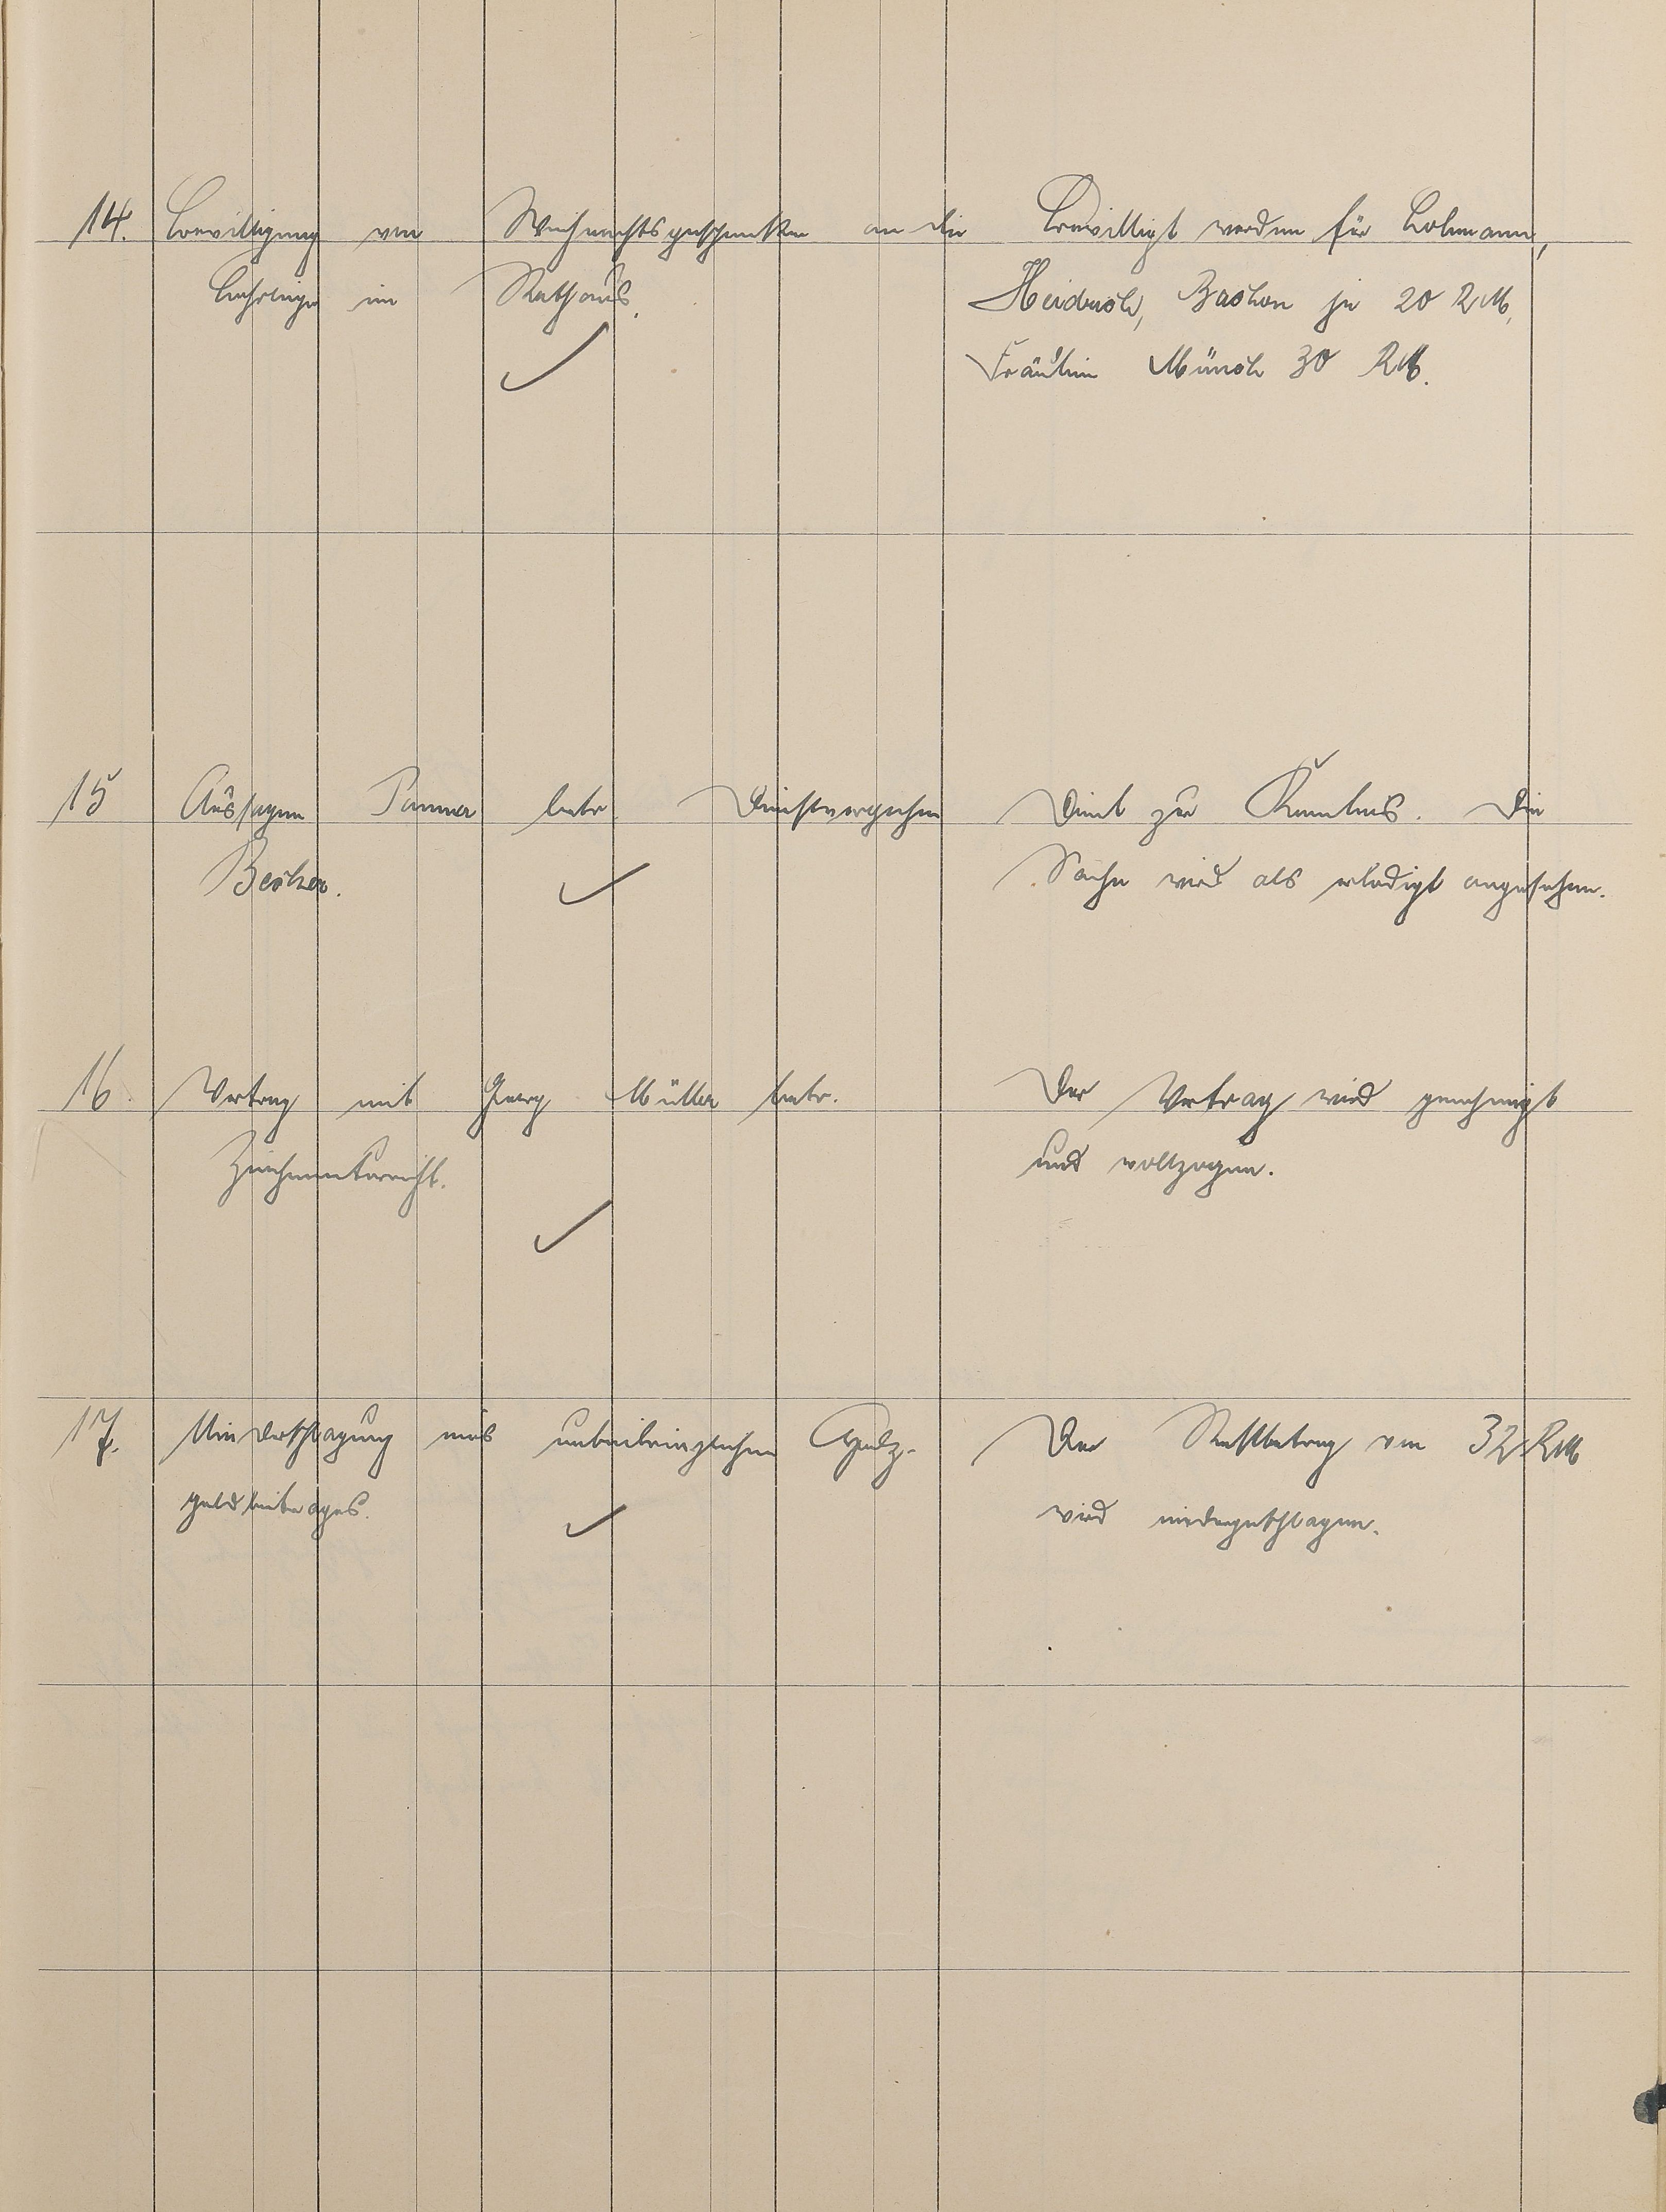 14. Bewilligung von Weihnachtsgeschenken an die
Lehrlinge im Rathaus.
Bewilligt werden für Lohmann,
Heidrich, Backen je 20 RM,
Fräulein Münch 30 RM.
15 Aussagen Panner betr. Dienstvergehen
Becker.
Dient zur Kenntnis. Die
Sache wird als erledigt angesehen.
16. Vertrag mit Georg Müller betr.
Zeichenunterricht.
Der Vertrag wird genehmigt
und vollzogen.
17. Niederschlagung eines unbeibringlichen
geldbeitrages.
Der Restbetrag von 32 RM
wird niedergeschlagen.